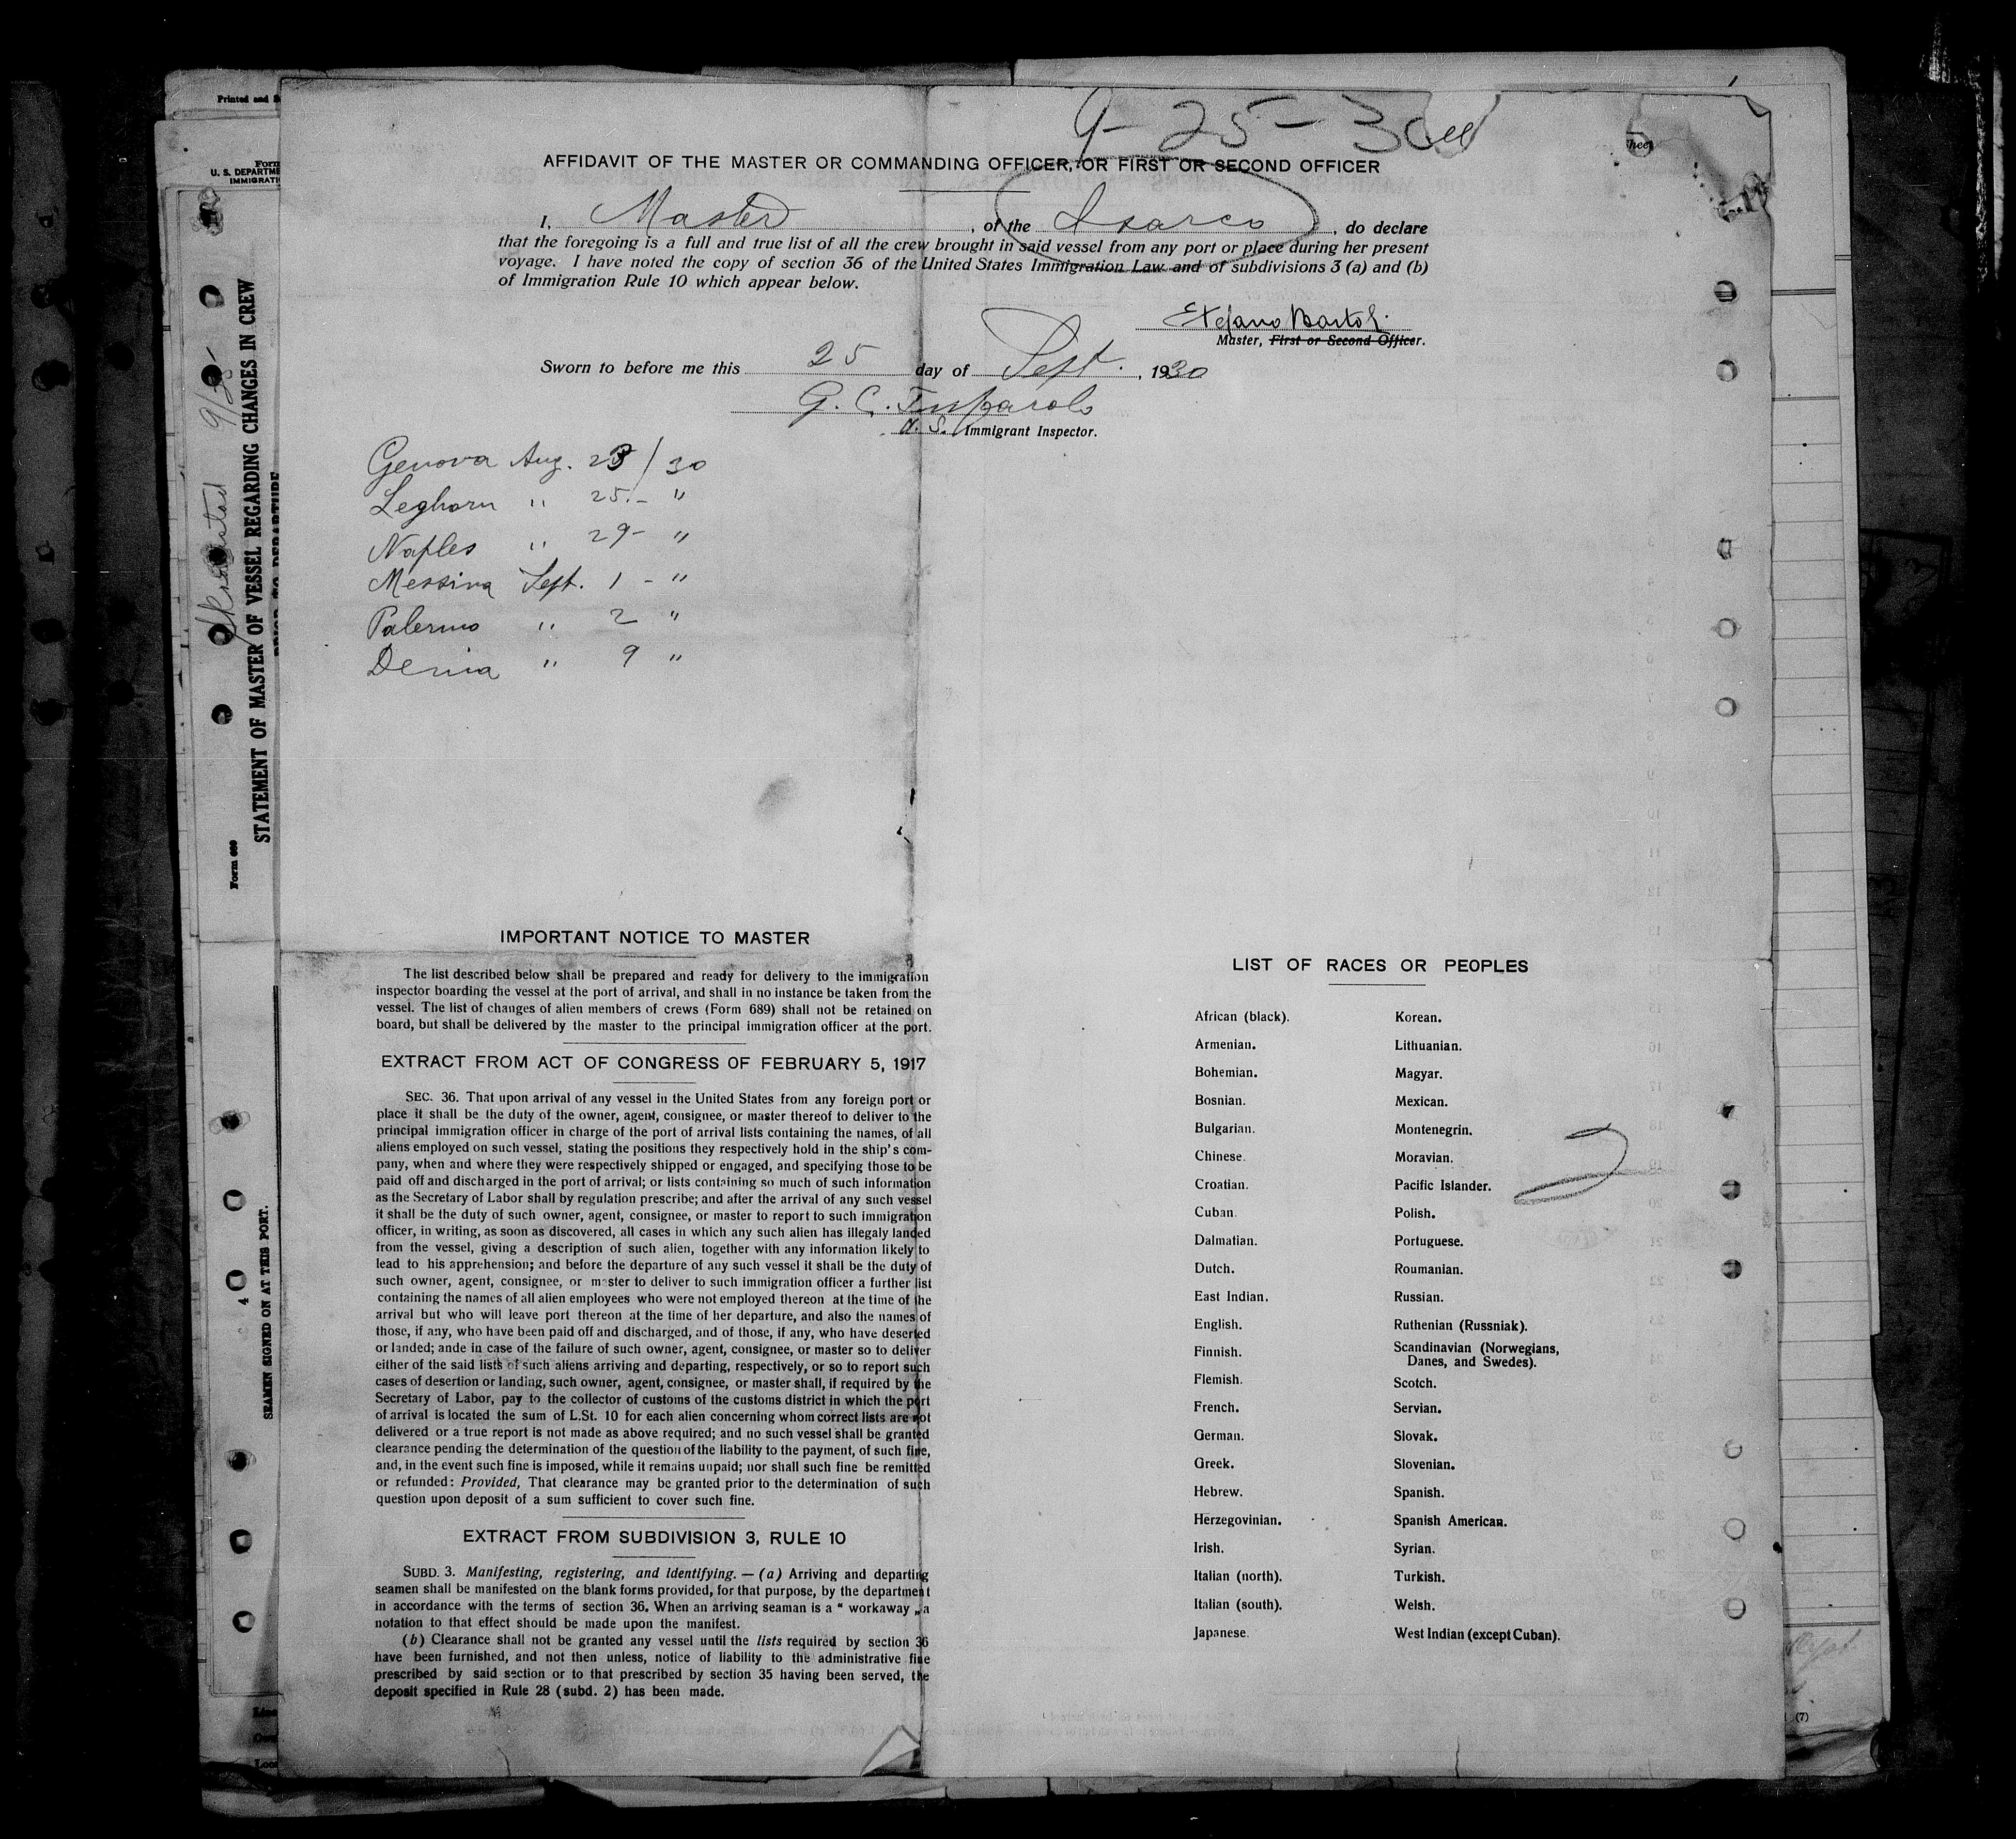 9-25-30
AFFIDAVIT OF THE MASTER OR COMMANDING OFFICER, OR FIRST OR SECOND OFFICER
I, Master, of the Isarco, do declare
that the foregoing is a full and true list of all the crew brought in said vessel from any port or place during her present
voyage. I have noted the copy of section 36 of the United States Immigration Law and of subdivisions 3 (a) and (b)
of Immigration Rule 10 which appear below.
Master, First or Second Officer.
Sworn to before me this 25 day of Sept., 1930
G. C.
U. S. Immigrant Inspector.
Genova Aug. 23/30
Leghorn " 25.- "
Naples " 29- "
Messina Sept. 1 - "
Palermo " 2 "
Denia " 9 "
IMPORTANT NOTICE TO MASTER
The list described below shall be prepared and ready for delivery to the immigration
inspector boarding the vessel at the port of arrival, and shall in no instance be taken from the
vessel. The list of changes of alien members of crews (Form 689) shall not be retained on
board, but shall be delivered by the master to the principal immigration officer at the port.
EXTRACT FROM ACT OF CONGRESS OF FEBRUARY 5, 1917
SEC. 36. That upon arrival of any vessel in the United States from any foreign port or
place it shall be the duty of the owner, agent, consignee, or master thereof to deliver to the
principal immigration officer in charge of the port of arrival lists containing the names, of all
aliens employed on such vessel, stating the positions they respectively hold in the ship's com-
pany, when and where they were respectively shipped or engaged, and specifying those to be
paid off and discharged in the port of arrival; or lists containing so much of such information
as the Secretary of Labor shall by regulation prescribe; and after the arrival of any such vessel
it shall be the duty of such owner, agent, consignee, or master to report to such immigration
officer, in writing, as soon as discovered, all cases in which any such alien has illegally landed
from the vessel, giving a description of such alien, together with any information likely to
lead to his apprehension; and before the departure of any such vessel it shall be the duty of
such owner, agent, consignee, or master to deliver to such immigration officer a further list
containing the names of all alien employees who were not employed thereon at the time of the
arrival but who will leave port thereon at the time of her departure, and also the names of
those, if any, who have been paid off and discharged, and of those, if any, who have deserted
or landed; ande in case of the failure of such owner, agent, consignee, or master so to deliver
either of the said lists of such aliens arriving and departing, respectively, or so to report such
cases of desertion or landing, such owner, agent, consignee, or master shall, if required by the
Secretary of Labor, pay to the collector of customs of the customs district in which the port
of arrival is located the sum of L.St. 10 for each alien concerning whom correct lists are not
delivered or a true report is not made as above required; and no such vessel shall be granted
clearance pending the determination of the question of the liability to the payment, of such fine,
and, in the event such fine is imposed, while it remains unpaid; nor shall such fine be remitted
or refunded: Provided, That clearance may be granted prior to the determination of such
question upon deposit of a sum sufficient to cover such fine.
EXTRACT FROM SUBDIVISION 3, RULE 10
SUBD. 3. Manifesting, registering, and identifying. — (a) Arriving and departing
seamen shall be manifested on the blank forms provided, for that purpose, by the department
in accordance with the terms of section 36. When an arriving seaman is a “ workaway „ a
notation to that effect should be made upon the manifest.
(b) Clearance shall not be granted any vessel until the lists required by section 36
have been furnished, and not then unless, notice of liability to the administrative fine
prescribed by said section or to that prescribed by section 35 having been served, the
deposit specified in Rule 28 (subd. 2) has been made.
LIST OF RACES OR PEOPLES
African (black).
Armenian.
Bohemian.
Bosnian.
Bulgarian.
Chinese.
Croatian.
Cuban.
Dalmatian.
Dutch.
East Indian.
English.
Finnish.
Flemish.
French.
German.
Greek.
Hebrew.
Herzegovinian.
Irish.
Italian (north).
Italian (south).
Japanese.
Korean.
Lithuanian.
Magyar.
Mexican.
Montenegrin.
Moravian.
Pacific Islander.
Polish.
Portuguese.
Roumanian.
Russian.
Ruthenian (Russniak).
Scandinavian (Norwegians,
Danes, and Swedes).
Scotch.
Servian.
Slovak.
Slovenian.
Spanish.
Spanish American.
Syrian.
Turkish.
Welsh.
West Indian (except Cuban).
Printed and
Form
U. S. DEPARTME
IMMIGRATI
Form 689
STATEMENT OF MASTER OF VESSEL REGARDING CHANGES IN CREW
PRIOR TO DEPARTURE
4
SEAMEN SIGNED ON AT THIS PORT.
(7)